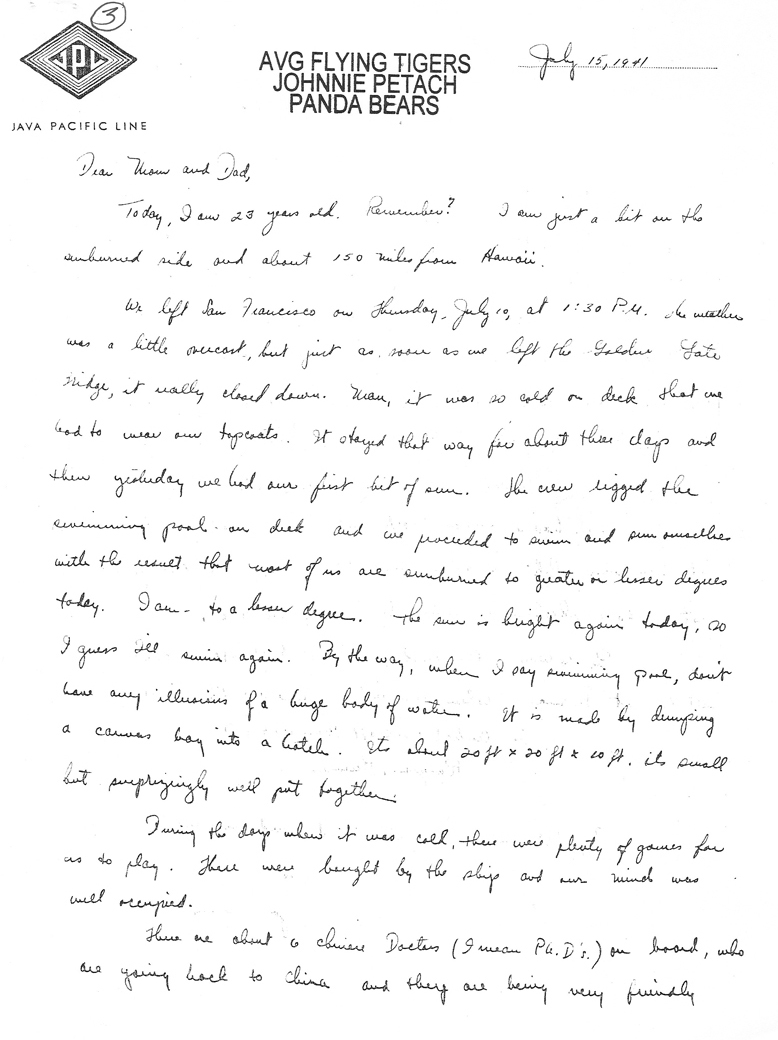 3
JPL
JAVA PACIFIC LINE
AVG FLYING TIGERS
JOHNNIE PETACH
PANDA BEARS
July 15, 1941
Dear Mom and Dad,
Today, I am 23 years old. Remember? I am just a bit on the
sunburned side and about 150 miles from Hawaii.
We left San Francisco on Thursday, July 10, at 1:30 P.M. The weather
was a little overcast, but just as soon as we left the Golden Gate
Bridge, it really closed down. Man, it was so cold on deck that we
had to wear our topcoats. It stayed that way for about three days and
then yesterday we had our first bit of sun. The crew rigged the
swimming pool on deck and we proceeded to swim and sun ourselves
with the result that most of us are sunburned to greater or lesser degrees
today. I am - to a lesser degree. The sun is bright again today, so
I guess I'll swim again. By the way, when I say swimming pool, don't
have any illusions of a huge body of water. It is made by dumping
a canvas bag into a hatch. Its about 20 ft x 20 ft x 10 ft. its small
but surprizingly well put together.
During the days when it was cold, there were plenty of games for
us to play. These were bought by the ship and our mind was
well occupied.
There are about 6 chinese Doctors (I mean Ph.D's.) on board, who
are going back to China and they are being very friendly